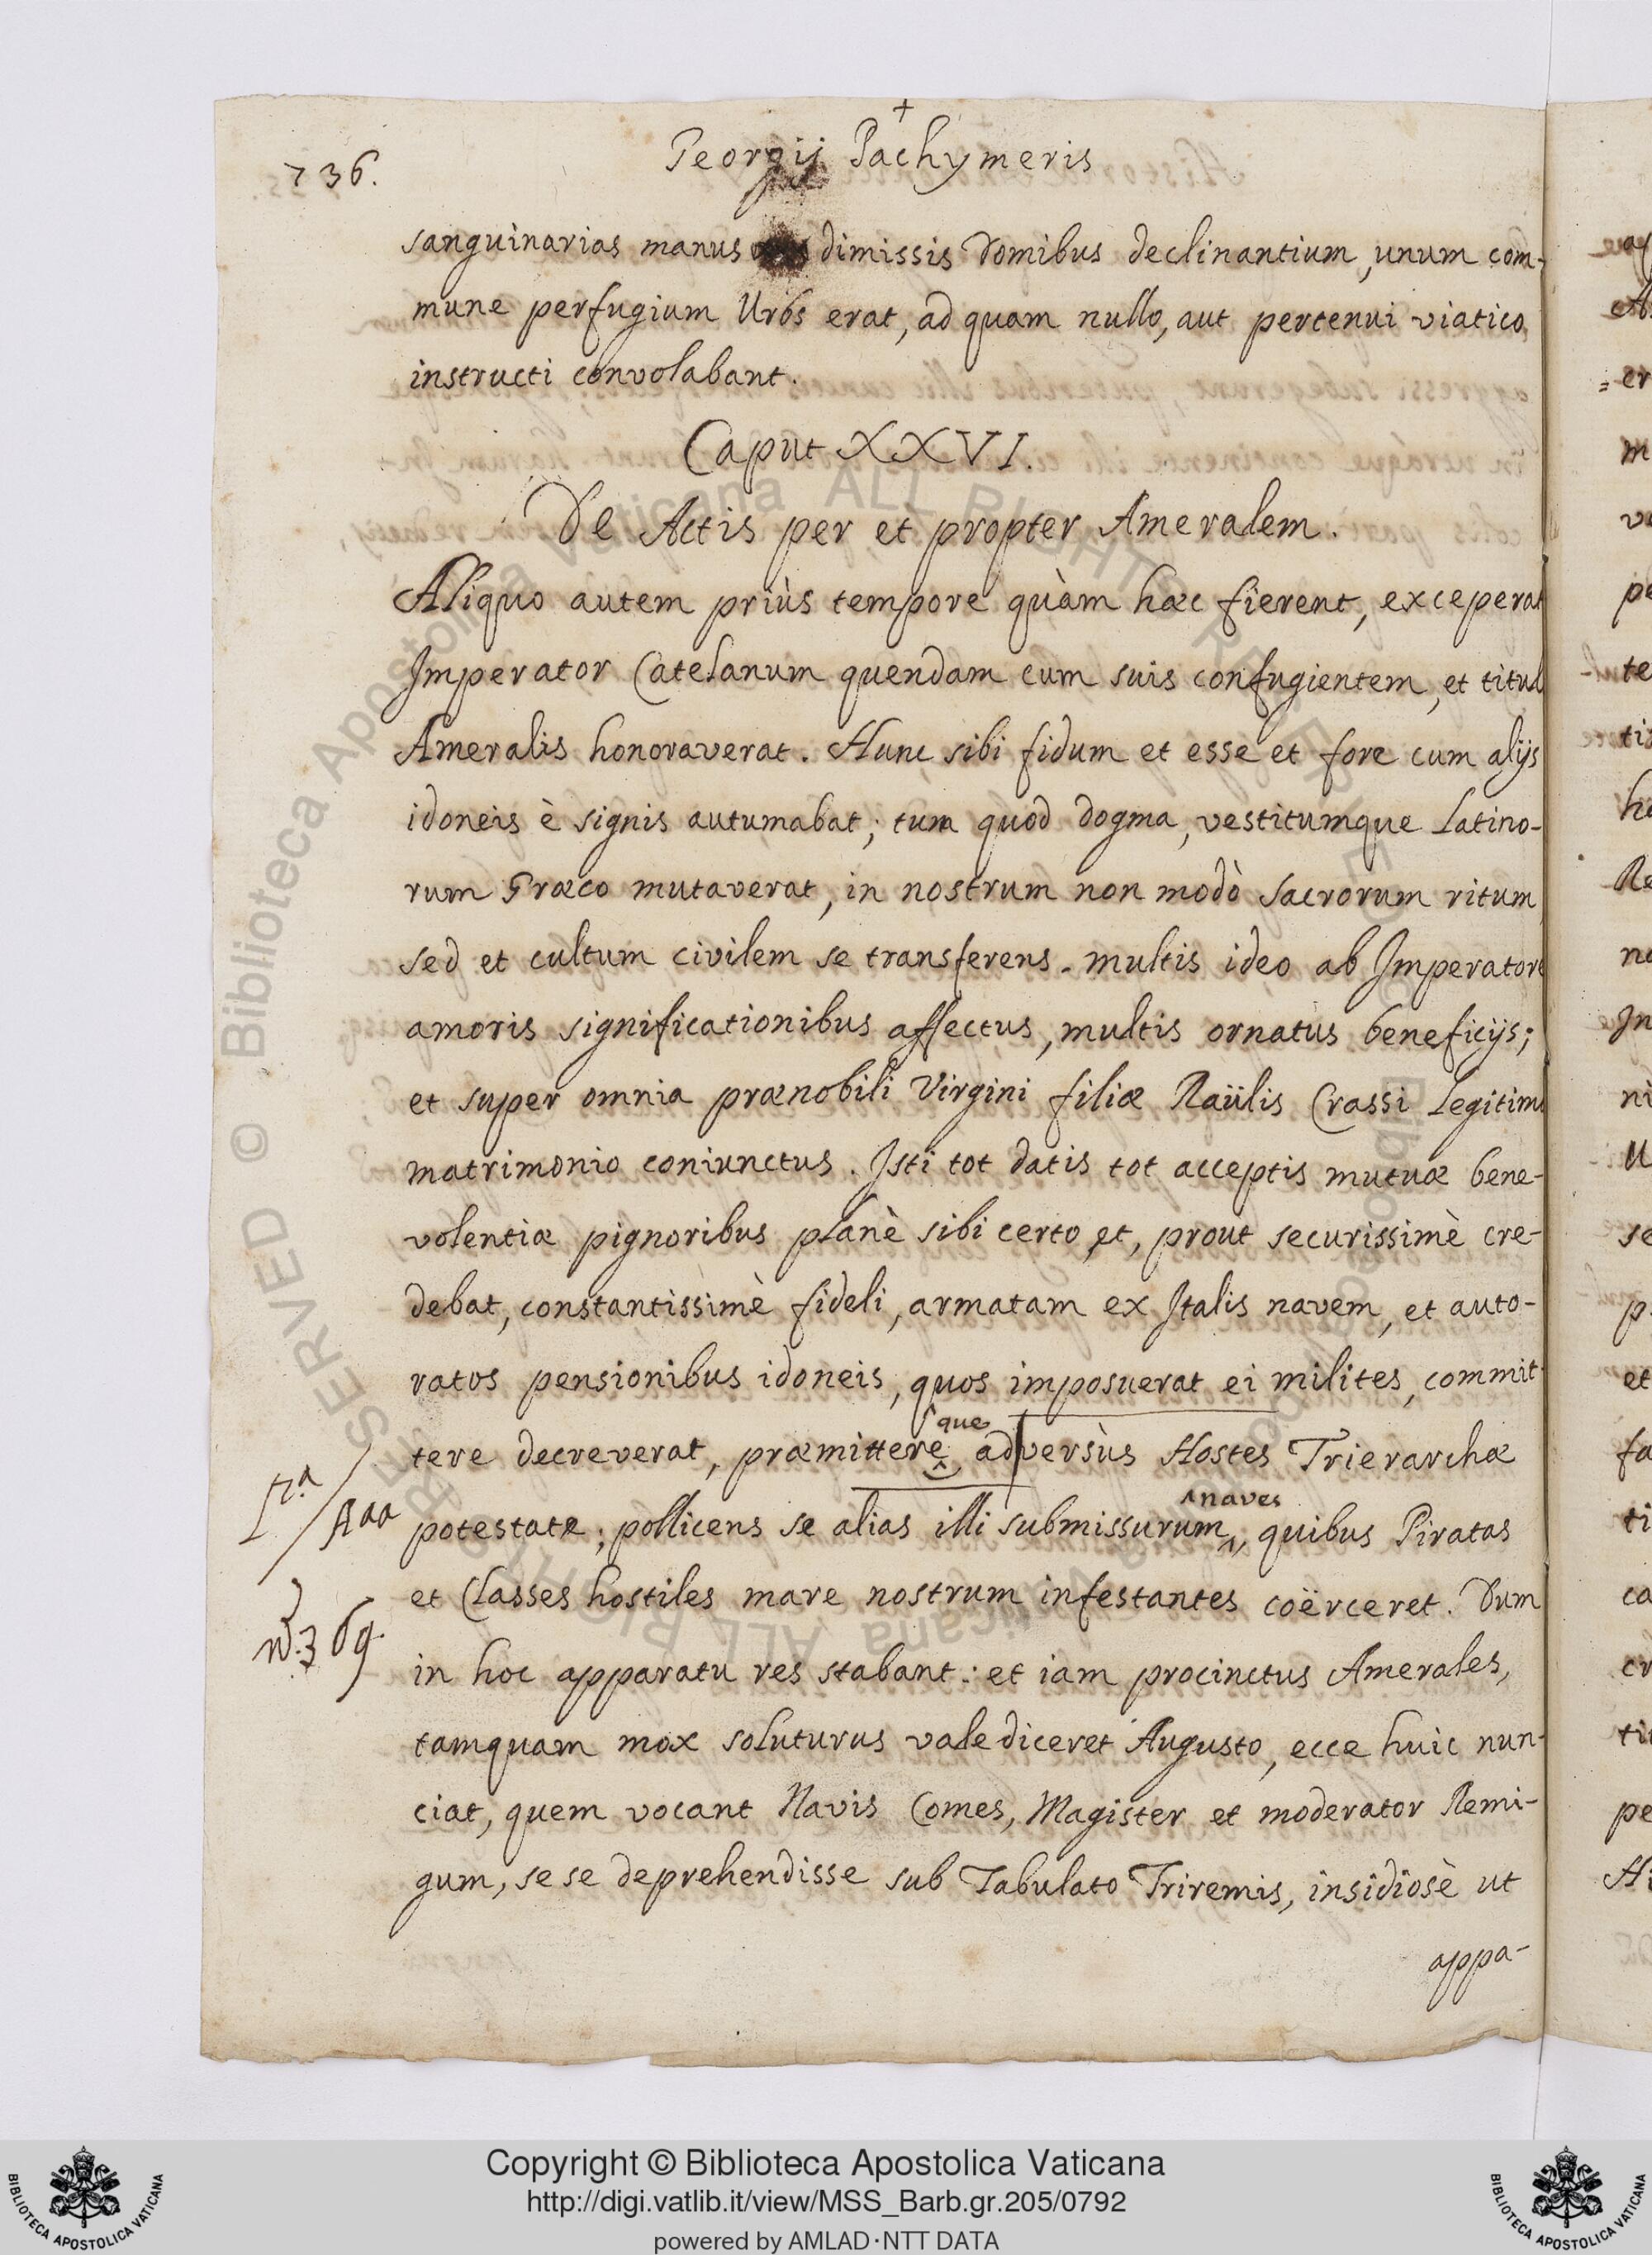 +
736.
Georgij Pachymeris
sanguinarias manus dimissis Domibus declinantium, unum com-
mune perfugium Urbs erat, ad quam nullo, aut pertenui viatico
instructi convolabant.
Caput XXVI.
De Actis per et propter Ameralem.
Aliquo autem priùs tempore quàm hæc fierent, exceperat
Imperator Catelanum quendam cum suis confugientem, et titul
Ameralis honoraverat. Hunc sibi fidum et esse et fore cum alijs
idoneis è signis autumabat; tum quod dogma, vestitumque Latino-
rum Græco mutaverat, in nostrum non modò sacrorum ritum
sed et cultum civilem se transferens. multis ideo ab Imperatore
amoris significationibus affectus, multis ornatus beneficijs;
et super omnia prænobili Virgini filiæ Raülis Crassi Legitimo
matrimonio coniunctus. Isti tot datis tot acceptis mutuæ bene-
volentiæ pignoribus planè sibi certo, et, prout securissimè cre-
debat, constantissimè fideli, armatam ex Italis navem, et auto-
ratos pensionibus idoneis, quos imposuerat ei milites, commit
que
tere decreverat, præmittere adversùs Hostes Trierarchæ
naves
potestate; pollicens se alias illi submissurum, quibus Piratas
et Classes hostiles mare nostrum infestantes coërceret. Dum
in hoc apparatu res stabant: et iam procinctus Amerales,
tamquam mox soluturus valediceret Augusto, ecce huic nun-
ciat, quem vocant Navis Comes, Magister et moderator Remi-
gum, se se deprehendisse sub Tabulato Triremis, insidiosè ut
appa-
Aaa
369
© Biblioteca Apostolica Vaticana ALL RIGHTS RESERVED
Copyright © Biblioteca Apostolica Vaticana
http://digi.vatlib.it/view/MSS_Barb.gr.205/0792
powered by AMLAD·NTT DATA
BIBLIOTECA APOSTOLICA VATICANA
BIBLIOTECA APOSTOLICA VATICANA